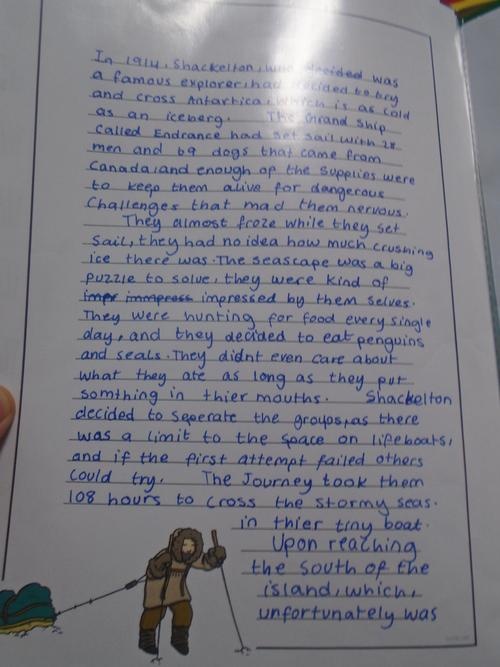 In 1914, Shackelton, who decided was
a famous explorer, had decided to try
and cross Antartica, which is as cold
as an iceberg. The Grand Ship
called Endrance had set sail with 28
men and 69 dogs that came from
Canada, and enough of the supplies were
to keep them alive for dangerous
Challenges that mad them nervous.
They almost froze while they set
sail, they had no idea how much crushing
ice there was. The seascape was a big
puzzle to solve, they were kind of
impr immpress impressed by them selves.
They were hunting for food every single
day, and they decided to eat penguins
and seals. They didnt even care about
what they ate as long as they put
somthing in thier mouths. Shackelton
decided to seperate the groups, as there
was a limit to the space on lifeboats,
and if the first attempt failed others
could try. The Journey took them
108 hours to cross the stormy seas.
in thier tiny boat.
Upon reaching
the south of the
island, which,
unfortunately was